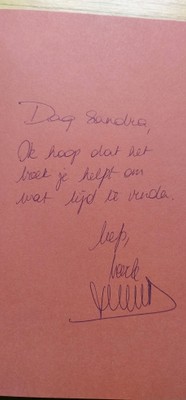 Dag Sandra,
Ik hoop dat het
boek je helpt om
wat tijd te vinden.